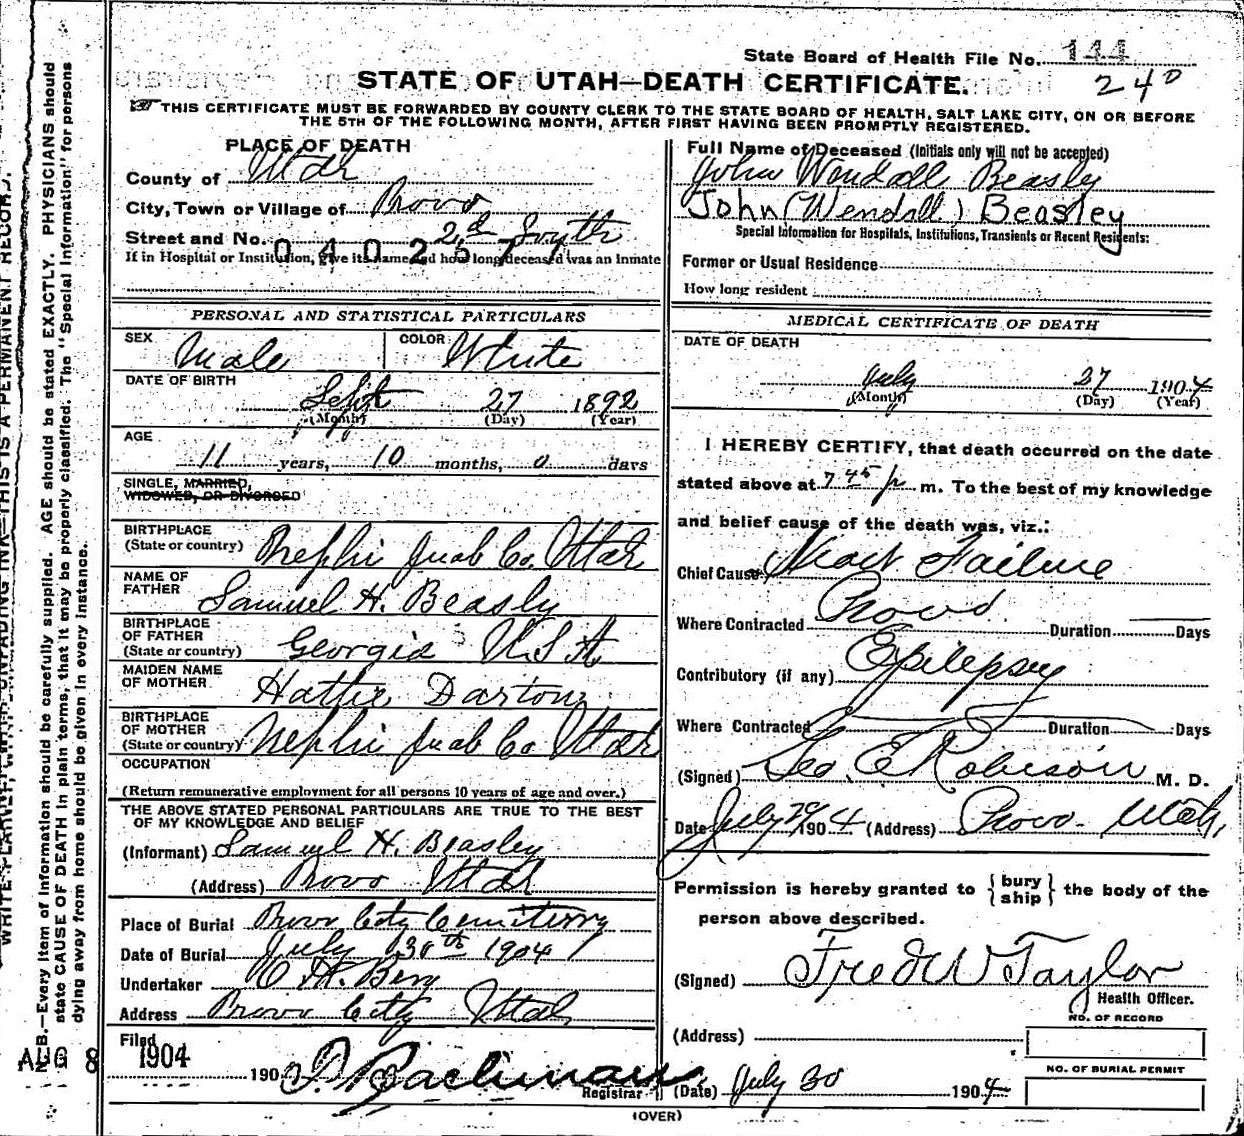 State Board of Health File No. 144
240
STATE OF UTAH—DEATH CERTIFICATE.
THIS CERTIFICATE MUST BE FORWARDED BY COUNTY CLERK TO THE STATE BOARD OF HEALTH, SALT LAKE CITY, ON OR BEFORE
THE 5TH OF THE FOLLOWING MONTH, AFTER FIRST HAVING BEEN PROMPTLY REGISTERED.
PLACE OF DEATH
County of Utah
City, Town or Village of Provo
Street and No. 2d South
0402577
If in Hospital or Institution, give its name and how long deceased was an Inmate
PERSONAL AND STATISTICAL PARTICULARS
SEX Male COLOR White
DATE OF BIRTH
Sept 27 1892
(Month) (Day) (Year)
AGE
11 years, 10 months, 0 days
SINGLE, MARRIED,
WIDOWED, OR DIVORCED
BIRTHPLACE
(State or country) Nephi Juab Co. Utah
NAME OF
FATHER Samuel H. Beasly
BIRTHPLACE
OF FATHER
(State or country) Georgia U S A
MAIDEN NAME
OF MOTHER Hattie Darton
BIRTHPLACE
OF MOTHER
(State or country) Nephi Juab Co Utah
OCCUPATION
(Return remunerative employment for all persons 10 years of age and over.)
THE ABOVE STATED PERSONAL PARTICULARS ARE TRUE TO THE BEST
OF MY KNOWLEDGE AND BELIEF
(Informant) Samuel H. Beasley
(Address) Provo Utah
Place of Burial Provo City Cemiterry
Date of Burial July 30th 1904
Undertaker O H. Berg
Address Provo City Utah
Filed
AUG 8 1904
190 Registrar
Full Name of Deceased (Initials only will not be accepted)
John Wendall Beasly
John (Wendall) Beasley
Special Information for Hospitals, Institutions, Transients or Recent Residents:
Former or Usual Residence
How long resident
MEDICAL CERTIFICATE OF DEATH
DATE OF DEATH
July 27 1904
(Month) (Day) (Year)
I HEREBY CERTIFY, that death occurred on the date
stated above at 7 45 p m. To the best of my knowledge
and belief cause of the death was, viz.:
Chief Cause Heart Failure
Where Contracted Provo Duration Days
Contributory (if any) Epilepsy
Where Contracted Duration Days
(Signed) Geo. E Robison M. D.
Date July 29 1904 (Address) Provo. Utah,
Permission is hereby granted to {bury ship} the body of the
person above described.
(Signed) Fred W Taylor
Health Officer.
NO. OF RECORD
(Address)
NO. OF BURIAL PERMIT
(Date) July 30 1904
(OVER)
N. B.—Every item of information should be carefully supplied. AGE should be stated EXACTLY. PHYSICIANS should
state CAUSE OF DEATH in plain terms, that it may be properly classified. The "Special Information" for persons
dying away from home should be given in every instance.
WRITE PLAINLY, WITH UNFADING INK—THIS IS A PERMANENT RECORD.